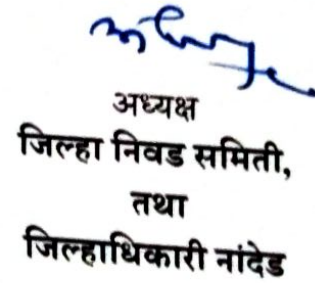 अध्यक्ष
जिल्हा निवड समिती,
तथा
जिल्हाधिकारी नांदेड